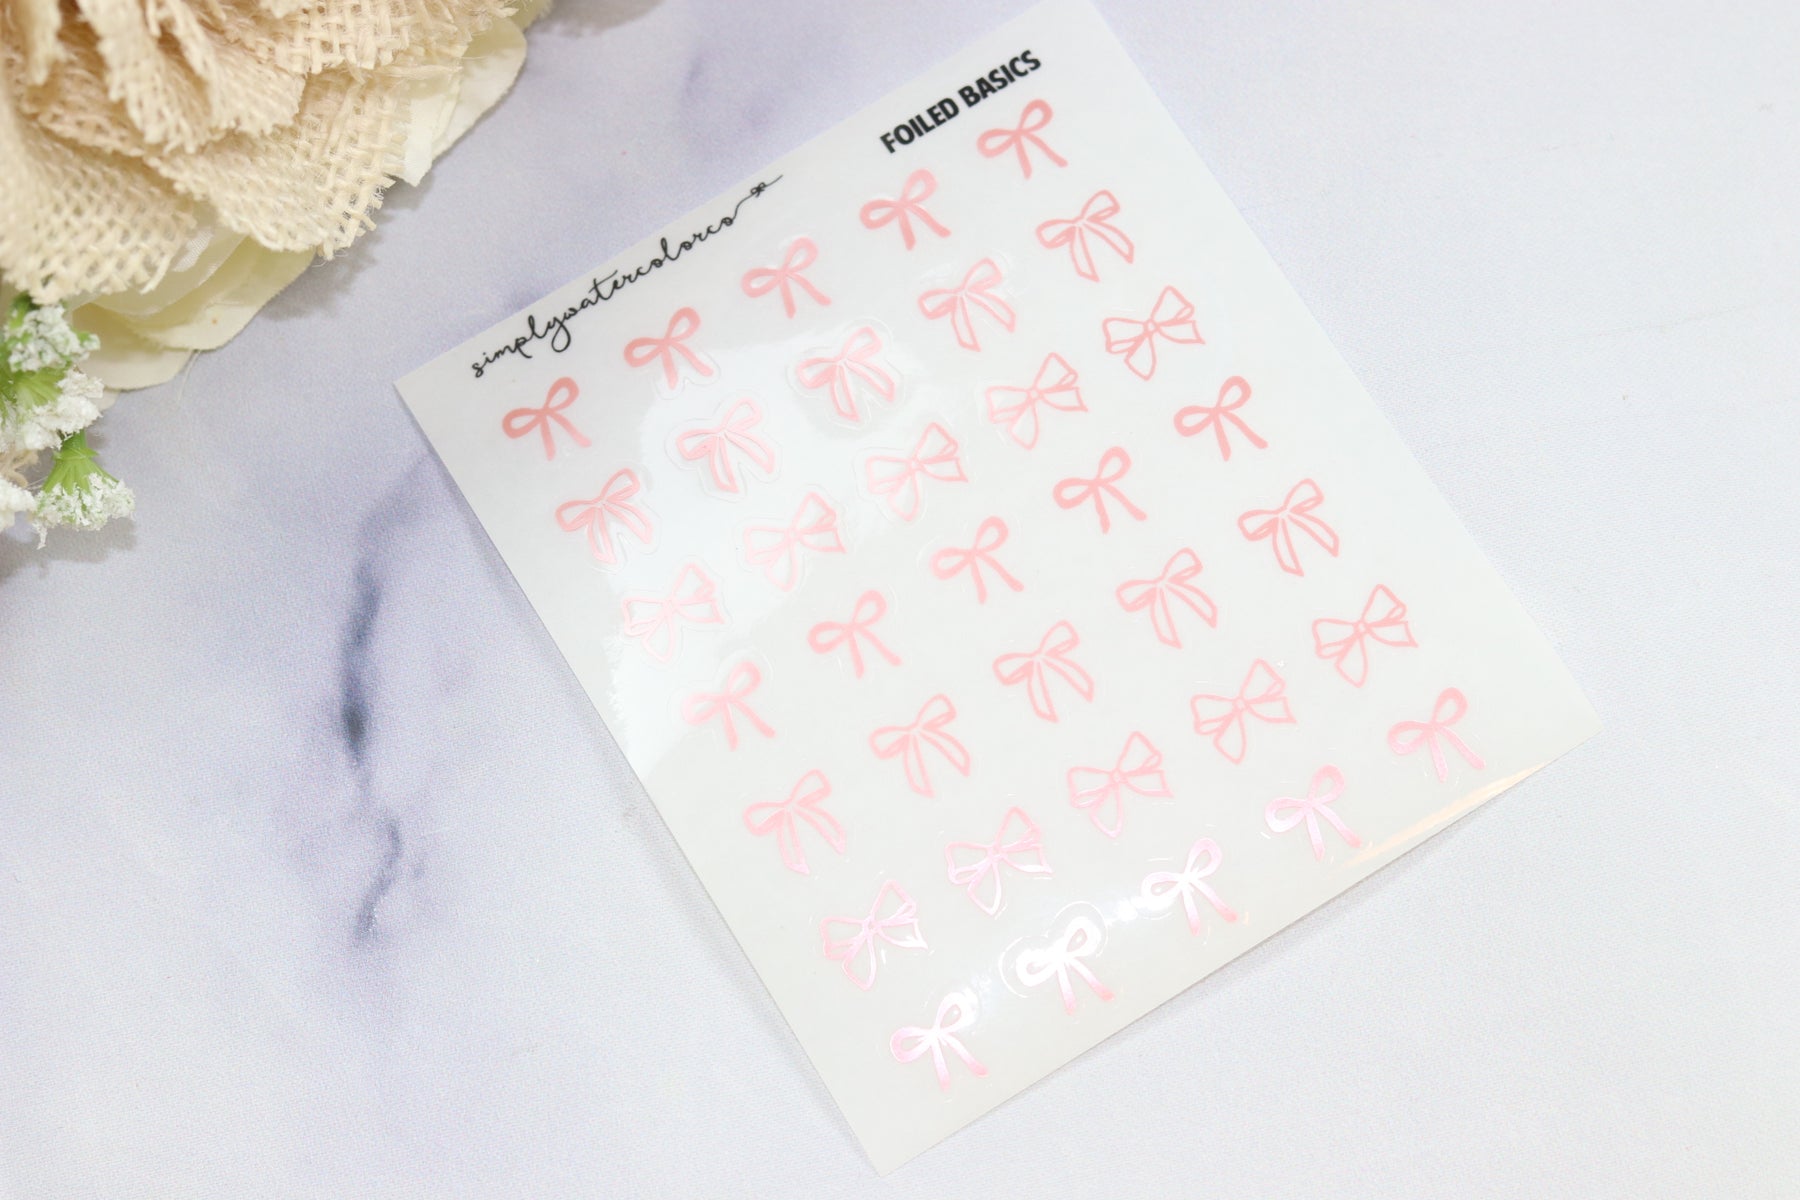 simplywatercolorco
FOILED BASICS